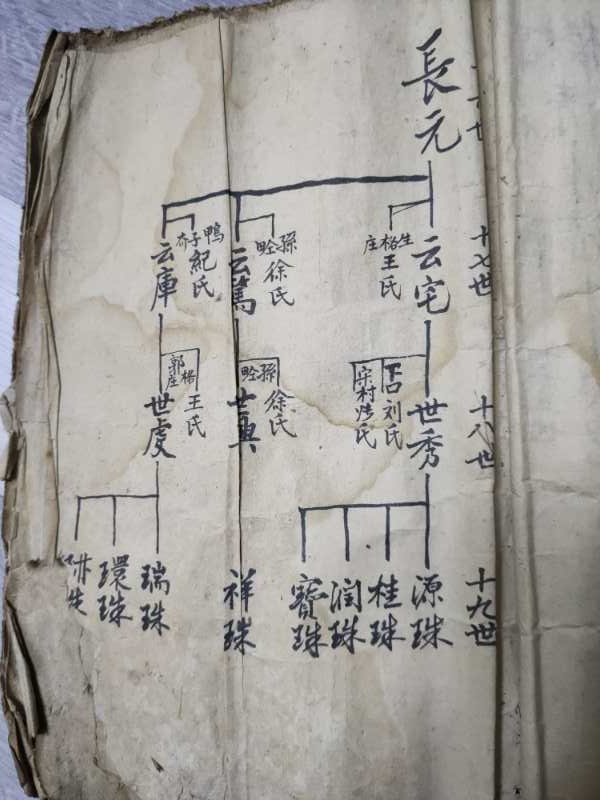 長元
十七世
云宅
生格庄
王氏
云篤
孫
徐氏
云庫
鴨子夼
紀氏
十八世
世秀
下口
刘氏
宋村
世興
孫
徐氏
世虔
郭格庄
王氏
十九世
源珠
桂珠
润珠
寶珠
祥珠
瑞珠
環珠
珠